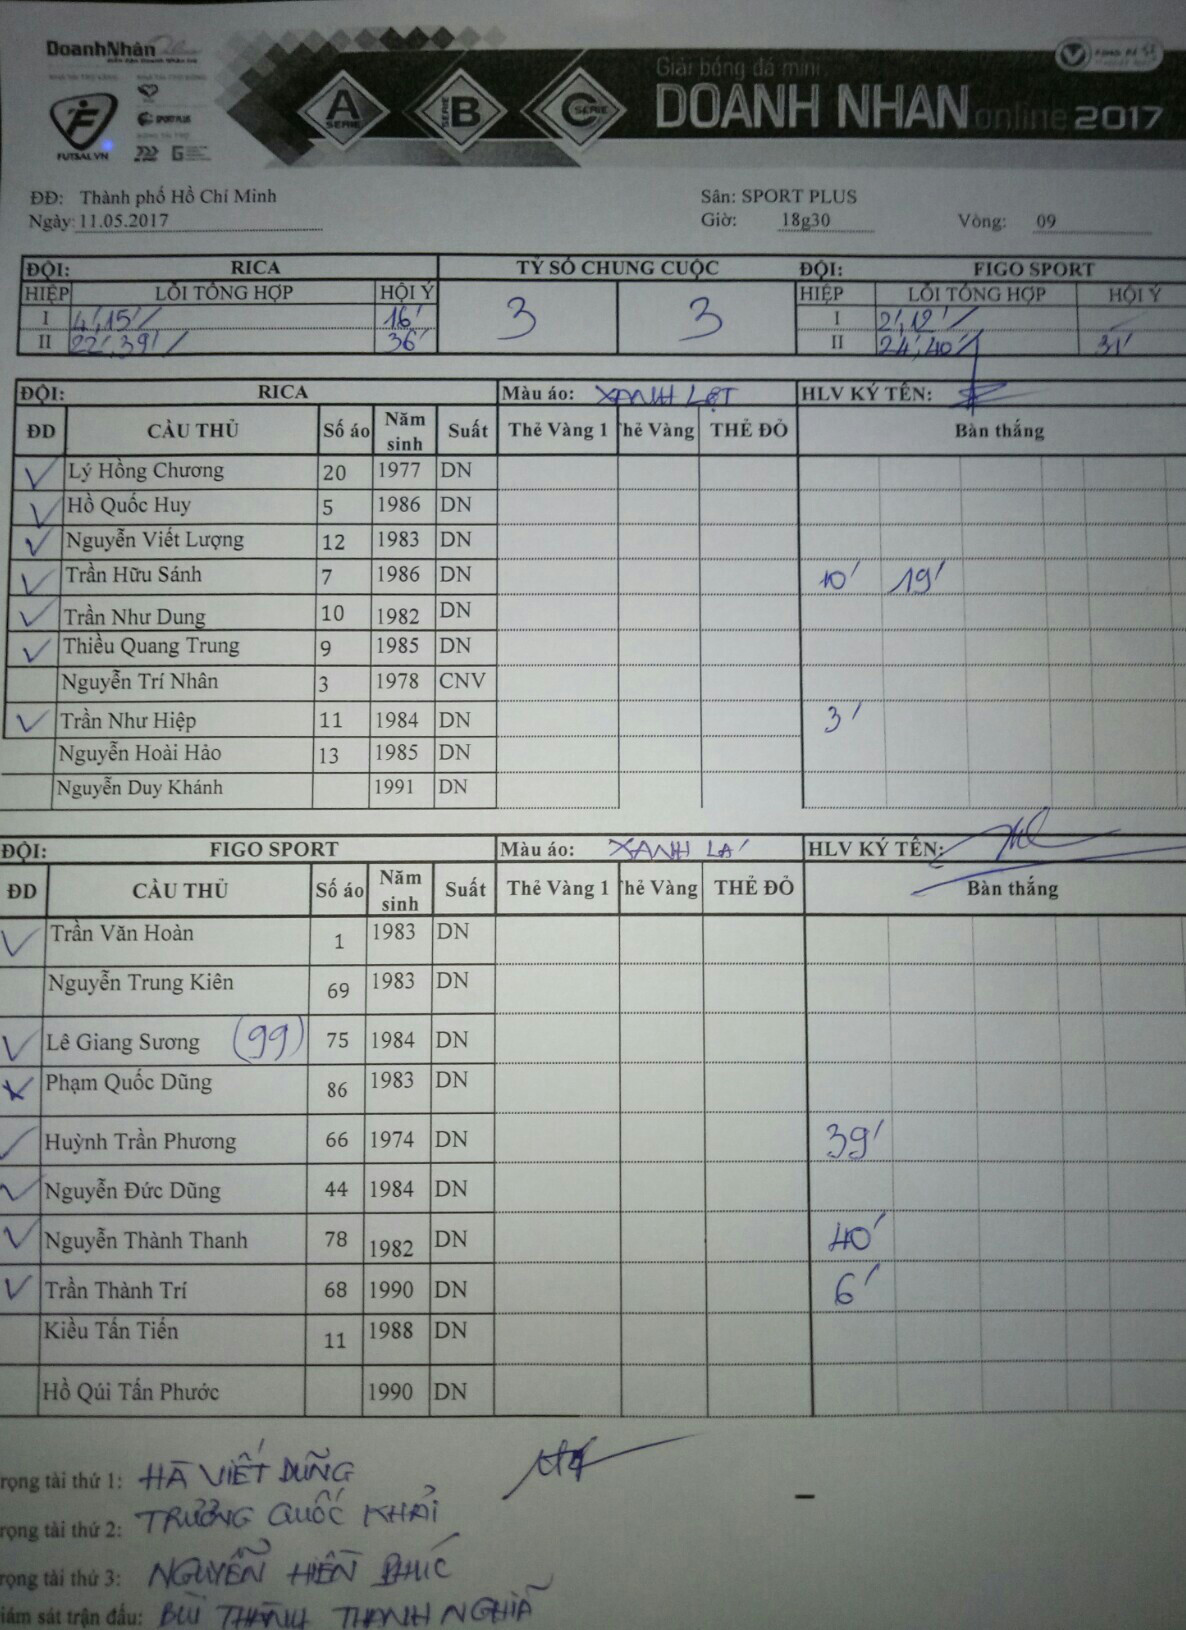 DoanhNhân
FUTSAL.VN
SPORT PLUS
A SERIE
SERIE B
C SERIE
Giải bóng đá mini
DOANH NHAN online 2017
ĐĐ: Thành phố Hồ Chí Minh Sân: SPORT PLUS
Ngày: 11.05.2017 Giờ: 18g30 Vòng: 09
ĐỘI: RICA TỶ SỐ CHUNG CUỘC ĐỘI: FIGO SPORT
HIỆP LỖI TỔNG HỢP HỘI Ý 3 3 HIỆP LỖI TỔNG HỢP HỘI Ý
I 4', 15' 16' I 2', 12'
II 22', 39' 36' II 24', 40' 31'
ĐỘI: RICA Màu áo: XANH LỢT HLV KÝ TÊN:
ĐD CẦU THỦ Số áo Năm sinh Suất Thẻ Vàng 1 Thẻ Vàng THẺ ĐỎ Bàn thắng
Lý Hồng Chương 20 1977 DN
Hồ Quốc Huy 5 1986 DN
Nguyễn Viết Lượng 12 1983 DN
Trần Hữu Sánh 7 1986 DN 10' 19'
Trần Như Dung 10 1982 DN
Thiều Quang Trung 9 1985 DN
Nguyễn Trí Nhân 3 1978 CNV
Trần Như Hiệp 11 1984 DN 3'
Nguyễn Hoài Hảo 13 1985 DN
Nguyễn Duy Khánh 1991 DN
ĐỘI: FIGO SPORT Màu áo: XANH LÁ HLV KÝ TÊN:
ĐD CẦU THỦ Số áo Năm sinh Suất Thẻ Vàng 1 Thẻ Vàng THẺ ĐỎ Bàn thắng
Trần Văn Hoàn 1 1983 DN
Nguyễn Trung Kiên 69 1983 DN
Lê Giang Sương (99) 75 1984 DN
Phạm Quốc Dũng 86 1983 DN
Huỳnh Trần Phương 66 1974 DN 39'
Nguyễn Đức Dũng 44 1984 DN
Nguyễn Thành Thanh 78 1982 DN 40'
Trần Thành Trí 68 1990 DN 6'
Kiều Tấn Tiến 11 1988 DN
Hồ Qúi Tấn Phước 1990 DN
rọng tài thứ 1: HÀ VIẾT DŨNG
rọng tài thứ 2: TRƯƠNG QUỐC KHẢI
rọng tài thứ 3: NGUYỄN HIỀN PHÚC
iám sát trận đấu: BÙI THÀNH THANH NGHĨA